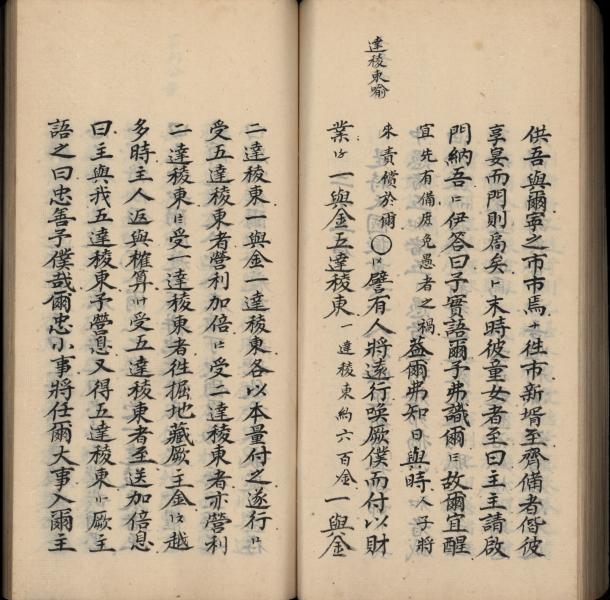 達稜東喻
供吾與爾寧之市市焉十徃市新壻至齊備者偕彼
享宴而門則扃矣末時彼童女者至曰主主請啟
門納吾伊答曰予實語爾予弗識爾故爾宜醒
宜先有備庶免愚者之禍葢爾弗知日與時人子將
來責償於爾○譬有人將遠行喚厥僕而付以財
業一與金五達稜東一達稜東約六百金一與金
二達稜東一與金一達稜東各以本量付之遂行
受五達稜東者營利加倍受二達稜東者亦營利
二達稜東受一達稜東者徃掘地藏厥主金越
多時主人返與榷算受五達稜東者至送加倍息
曰主與我五達稜東予營息又得五達稜東厥主
語之曰忠善予僕哉爾忠小事將任爾大事入爾主